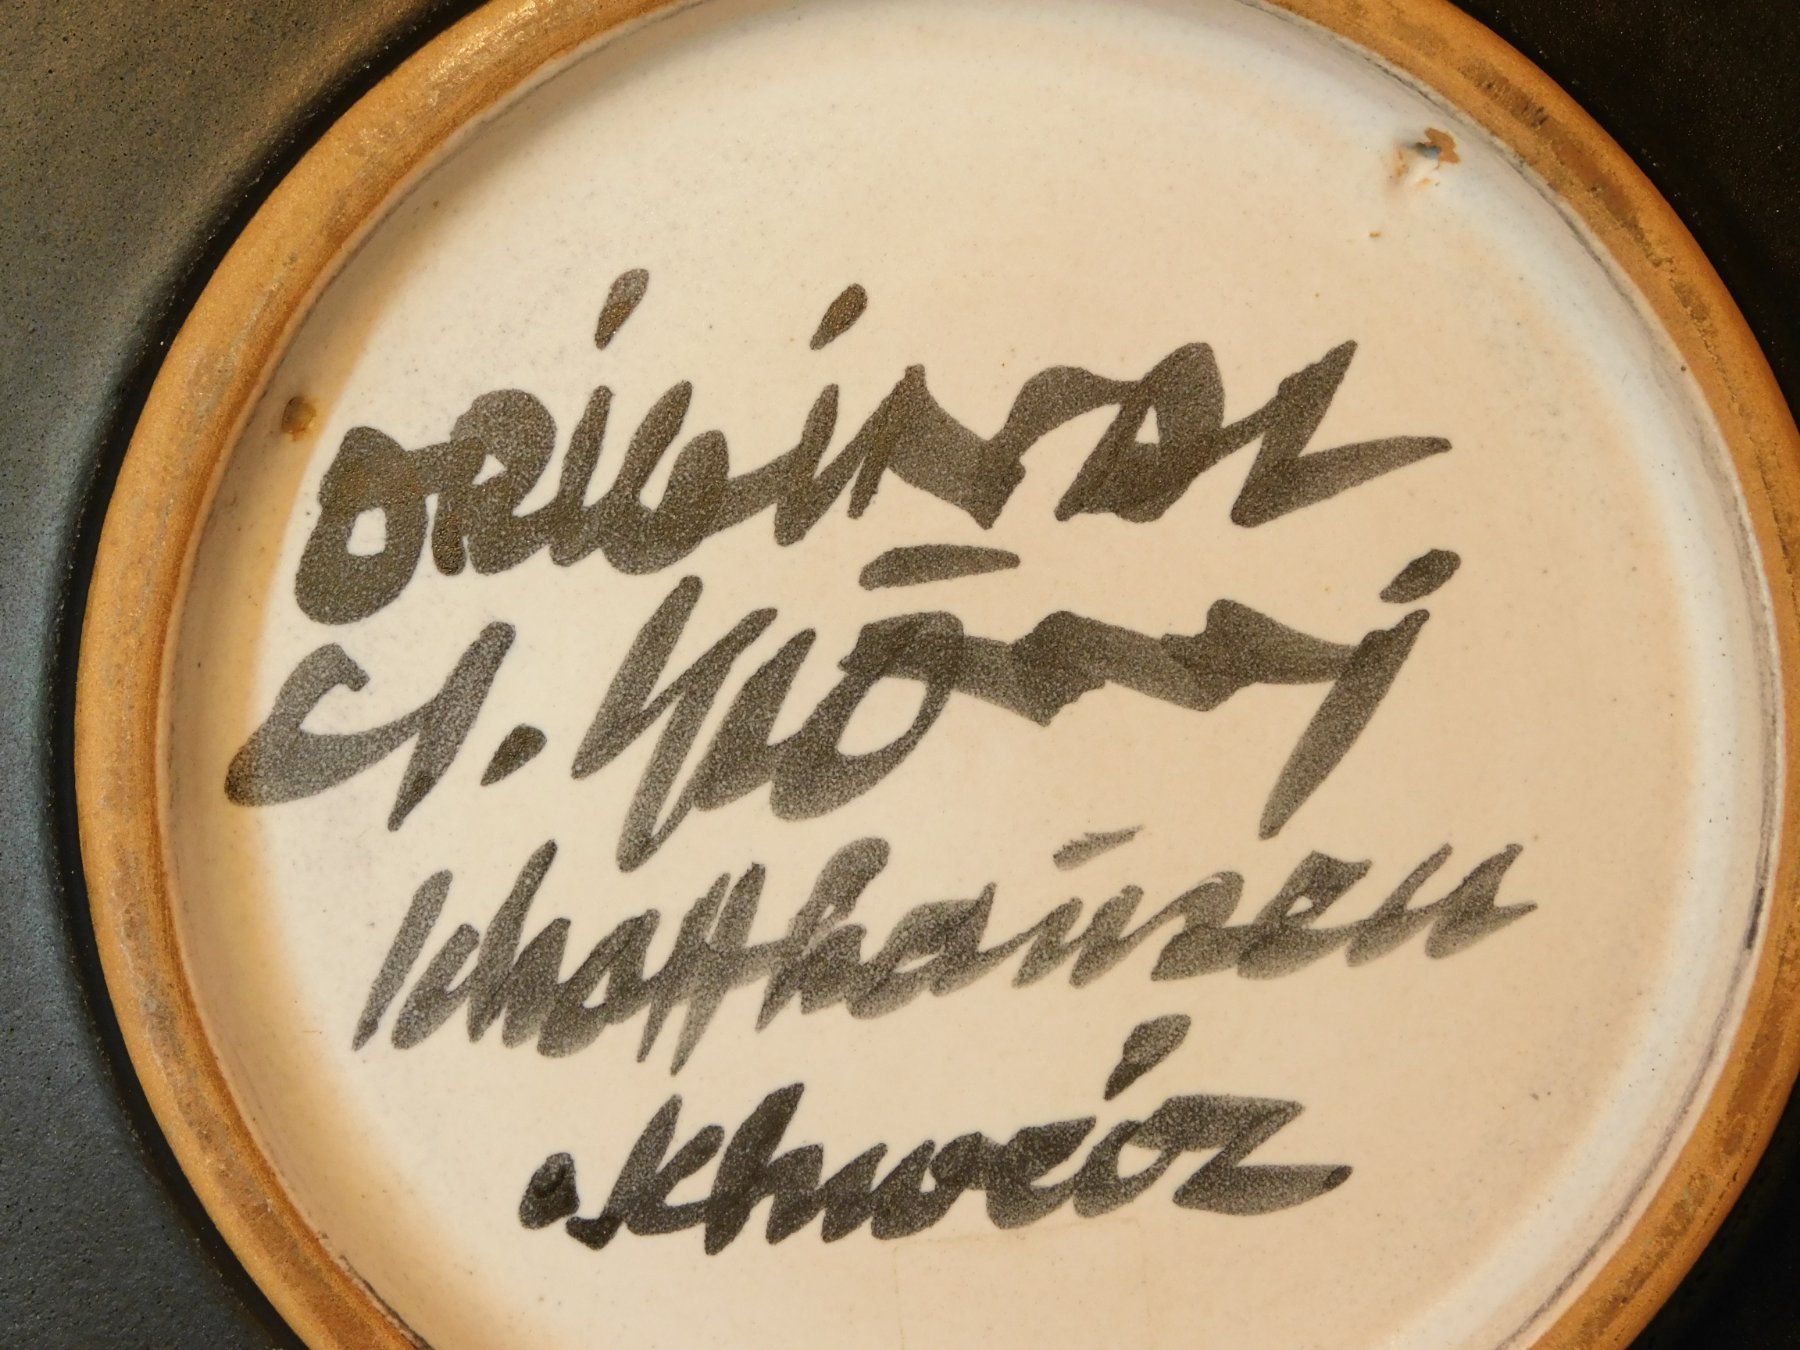 ORIGINAL
Cl.
Schaffhausen
Schweiz